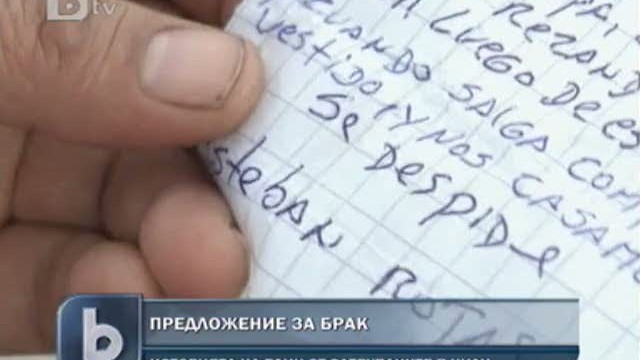 btv
PA,
REZAND
LUEGO DE ES
CUANDO SALGA COM
VESTIDO, Y NOS CASAM
SE DESPIDE
Esteban ROJAS
b ПРЕДЛОЖЕНИЕ ЗА БРАК